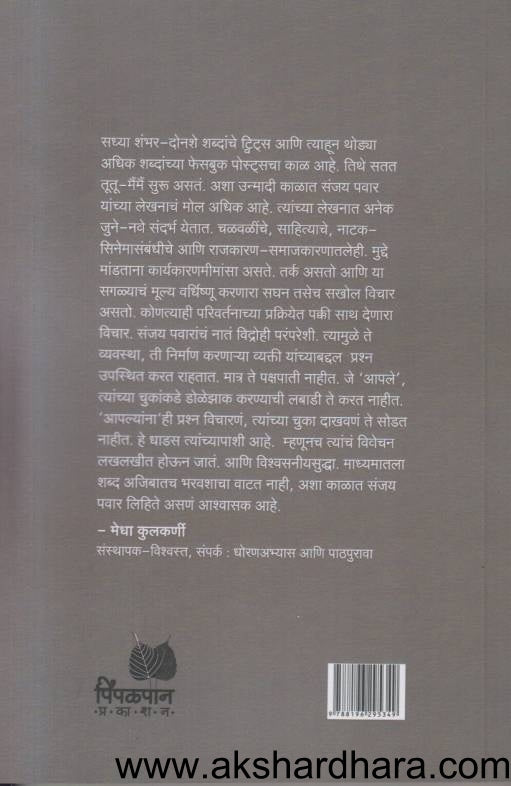 सध्या शंभर-दोनशे शब्दांचे ट्विट्स आणि त्याहून थोड्या
अधिक शब्दांच्या फेसबुक पोस्ट्सचा काळ आहे. तिथे सतत
तूतू-मैंमैं सुरू असतं. अशा उन्मादी काळात संजय पवार
यांच्या लेखनाचं मोल अधिक आहे. त्यांच्या लेखनात अनेक
जुने-नवे संदर्भ येतात. चळवळींचे, साहित्याचे, नाटक-
सिनेमासंबंधीचे आणि राजकारण-समाजकारणातलेही. मुद्दे
मांडताना कार्यकारणमीमांसा असते. तर्क असतो आणि या
सगळ्याचं मूल्य वर्धिष्णू करणारा सघन तसेच सखोल विचार
असतो. कोणत्याही परिवर्तनाच्या प्रक्रियेत पक्की साथ देणारा
विचार. संजय पवारांचं नातं विद्रोही परंपरेशी. त्यामुळे ते
व्यवस्था, ती निर्माण करणाऱ्या व्यक्ती यांच्याबद्दल प्रश्न
उपस्थित करत राहतात. मात्र ते पक्षपाती नाहीत. जे ‘आपले’,
त्यांच्या चुकांकडे डोळेझाक करण्याची लबाडी ते करत नाहीत.
‘आपल्यांना’ही प्रश्न विचारणं, त्यांच्या चुका दाखवणं ते सोडत
नाहीत. हे धाडस त्यांच्यापाशी आहे. म्हणूनच त्यांचं विवेचन
लखलखीत होऊन जातं. आणि विश्वसनीयसुद्धा. माध्यमातला
शब्द अजिबातच भरवशाचा वाटत नाही, अशा काळात संजय
पवार लिहिते असणं आश्वासक आहे.
- मेधा कुलकर्णी
संस्थापक-विश्वस्त, संपर्क : धोरणअभ्यास आणि पाठपुरावा
पिंपळपान
·प्र·का·श·न·
9788196295349
www.akshardhara.com